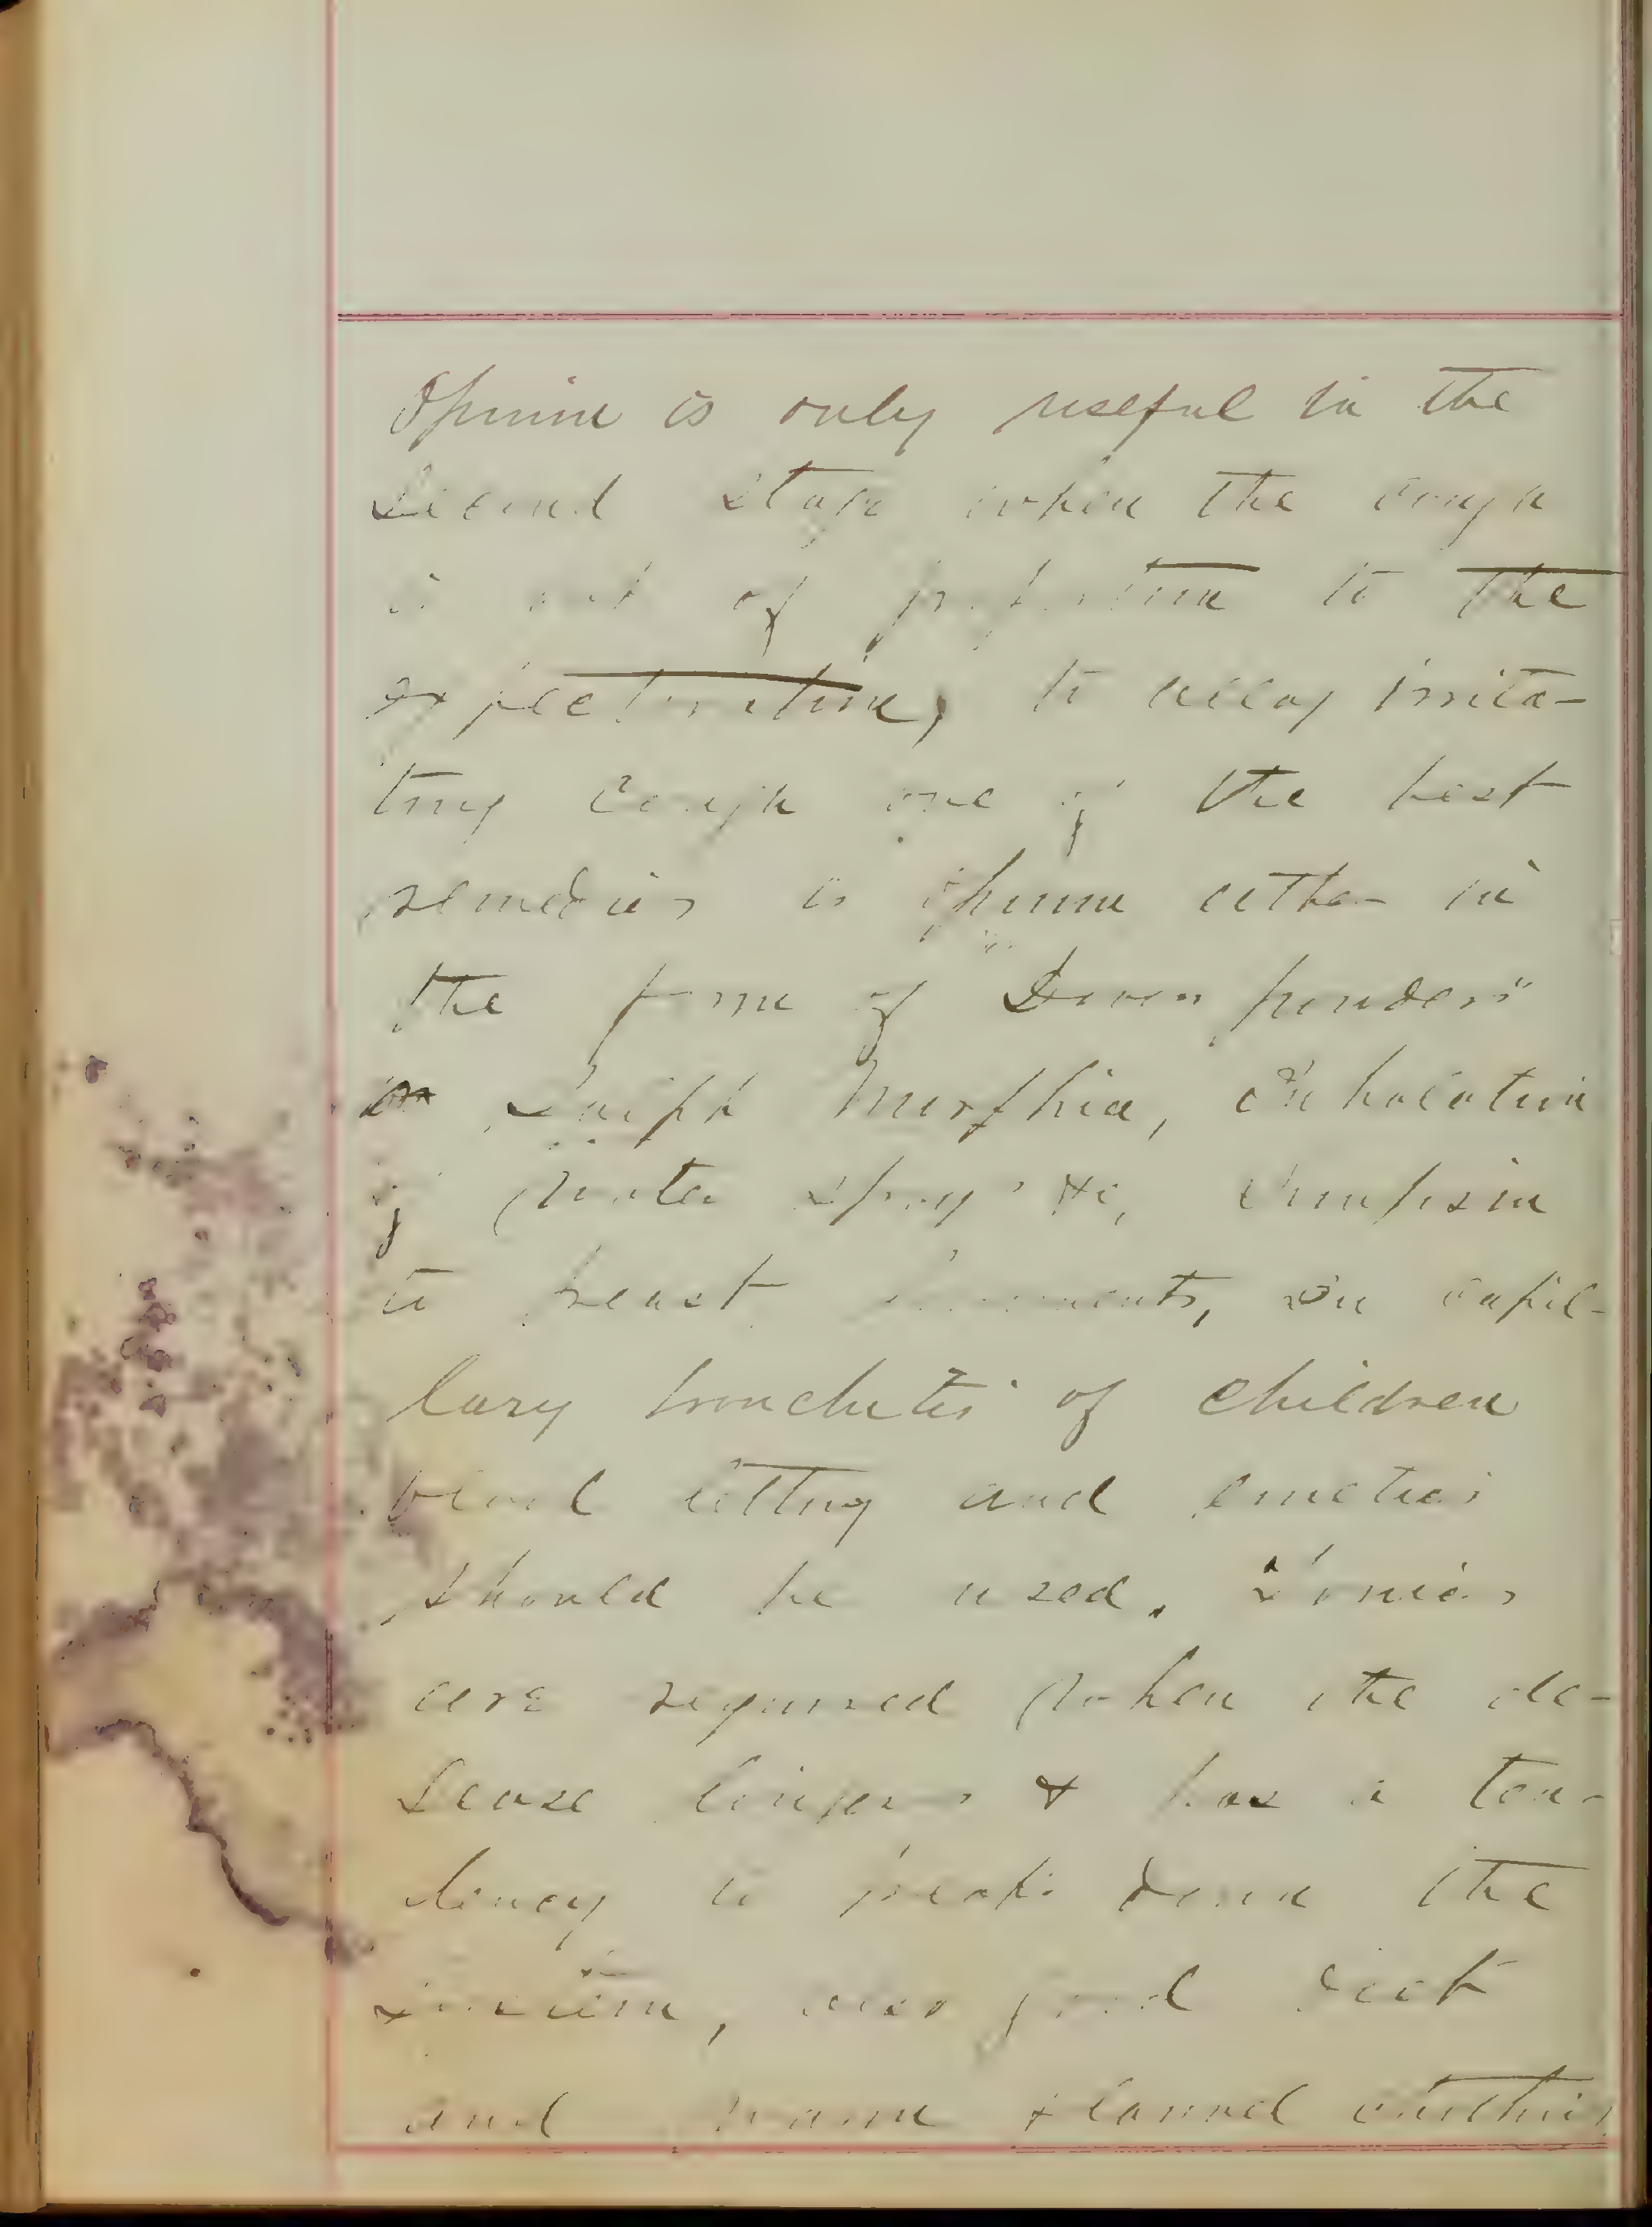 Opium is only useful in the
Second stage when the cough
is out of proportion to the
expectoration, to allay irrita-
ting cough one of the best
remedies is opium either in
the form of "Dovers powders"
or Sulph Morphia, Inhalation
of water spray &c,
to breast, In capil-
lary bronchitis of children
blood letting and emetics
should be used. Tonics
are required when the de-
sease lingers & has a ten-
dency to break down the
system, also good diet
and warm flannel clothing